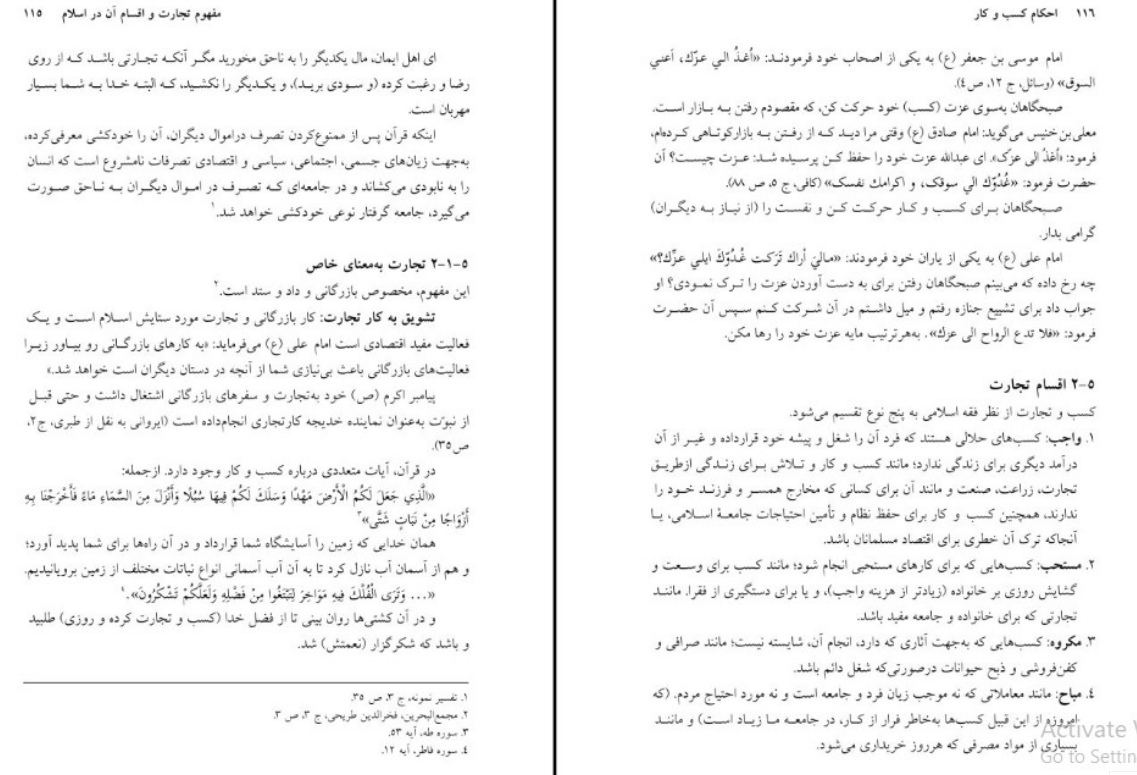 مفهوم تجارت و اقسام آن در اسلام ۱۱۵
ای اهل ایمان، مال یکدیگر را به ناحق مخورید مگر آنکه تجارتی باشد که از روی
رضا و رغبت کرده (و سودی برید)، و یکدیگر را نکشید، که البته خدا به شما بسیار
مهربان است.
اینکه قرآن پس از ممنوع‌کردن تصرف دراموال دیگران، آن را خودکشی معرفی‌کرده،
به‌جهت زیان‌های جسمی، اجتماعی، سیاسی و اقتصادی تصرفات نامشروع است که انسان
را به نابودی می‌کشاند و در جامعه‌ای که تصرف در اموال دیگران به ناحق صورت
می‌گیرد، جامعه گرفتار نوعی خودکشی خواهد شد.۱
۵-۱-۲ تجارت به‌معنای خاص
این مفهوم، مخصوص بازرگانی و داد و ستد است.۲
تشویق به کار تجارت: کار بازرگانی و تجارت مورد ستایش اسلام است و یک
فعالیت مفید اقتصادی است امام علی (ع) می‌فرماید: «به کارهای بازرگانی رو بیاور زیرا
فعالیت‌های بازرگانی باعث بی‌نیازی شما از آنچه در دستان دیگران است خواهد شد.»
پیامبر اکرم (ص) خود به‌تجارت و سفرهای بازرگانی اشتغال داشت و حتی قبل
از نبوّت به‌عنوان نماینده خدیجه کارتجاری انجام‌داده است (ایروانی به نقل از طبری، ج۲،
ص۳۵).
در قرآن، آیات متعددی درباره کسب و کار وجود دارد. ازجمله:
«الَّذِي جَعَلَ لَكُمُ الْأَرْضَ مَهْدًا وَسَلَكَ لَكُمْ فِيهَا سُبُلًا وَأَنْزَلَ مِنَ السَّمَاءِ مَاءً فَأَخْرَجْنَا بِهِ
أَزْوَاجًا مِنْ نَبَاتٍ شَتَّى»۳
همان خدایی که زمین را آسایشگاه شما قرارداد و در آن راه‌ها برای شما پدید آورد؛
و هم از آسمان آب نازل کرد تا به آن آب آسمانی انواع نباتات مختلف از زمین برویانیدیم.
«... وَتَرَى الْفُلْكَ فِيهِ مَوَاخِرَ لِتَبْتَغُوا مِنْ فَضْلِهِ وَلَعَلَّكُمْ تَشْكُرُونَ».۴
و در آن کشتی‌ها روان بینی تا از فضل خدا (کسب و تجارت کرده و روزی) طلبید
و باشد که شکرگزار (نعمتش) شد.
۱. تفسیر نمونه، ج ۳، ص ۳۵.
۲. مجمع‌البحرین، فخرالدین طریحی، ج ۳، ص ۳.
۳. سوره طه، آیه ۵۳.
۴. سوره فاطر، آیه ۱۲.
۱۱۶ احکام کسب و کار
امام موسی بن جعفر (ع) به یکی از اصحاب خود فرمودند: «اُغذُ الي عزّك، أعني
السوق» (وسائل، ج ۱۲، ص۴).
صبحگاهان به‌سوی عزت (کسب) خود حرکت کن، که مقصودم رفتن به بازار است.
معلی‌بن‌خنیس می‌گوید: امام صادق (ع) وقتی مرا دید که از رفتن به بازارکوتاهی کرده‌ام،
فرمود: «اُغذُ الی عزّک». ای عبدالله عزت خود را حفظ کن پرسیده شد: عزت چیست؟ آن
حضرت فرمود: «غُدُوّك الي سوقك، و اكرامك نفسك» (کافی، ج ۵، ص ۸۸).
صبحگاهان برای کسب و کار حرکت کن و نفست را (از نیاز به دیگران)
گرامی بدار.
امام علی (ع) به یکی از یاران خود فرمودند: «ماليَ أراك تَرَكت غُدُوّكَ ايلي عزّك؟»
چه رخ داده که می‌بینم صبحگاهان رفتن برای به دست آوردن عزت را ترک نمودی؟ او
جواب داد برای تشییع جنازه رفتم و میل داشتم در آن شرکت کنم سپس آن حضرت
فرمود: «فلا تدع الرواح الی عزك». به‌هرترتیب مایه عزت خود را رها مکن.
۵-۲ اقسام تجارت
کسب و تجارت از نظر فقه اسلامی به پنج نوع تقسیم می‌شود.
۱. واجب: کسب‌های حلالی هستند که فرد آن را شغل و پیشه خود قرارداده و غیر از آن
درآمد دیگری برای زندگی ندارد؛ مانند کسب و کار و تلاش برای زندگی ازطریق
تجارت، زراعت، صنعت و مانند آن برای کسانی که مخارج همسر و فرزند خود را
ندارند، همچنین کسب و کار برای حفظ نظام و تأمین احتیاجات جامعهٔ اسلامی، یا
آنجاکه ترک آن خطری برای اقتصاد مسلمانان باشد.
۲. مستحب: کسب‌هایی که برای کارهای مستحبی انجام شود؛ مانند کسب برای وسعت و
گشایش روزی بر خانواده (زیادتر از هزینه واجب)، و یا برای دستگیری از فقرا. مانند
تجارتی که برای خانواده و جامعه مفید باشد.
۳. مکروه: کسب‌هایی که به‌جهت آثاری که دارد، انجام آن، شایسته نیست؛ مانند صرافی و
کفن‌فروشی و ذبح حیوانات درصورتی‌که شغل دائم باشد.
۴. مباح: مانند معاملاتی که نه موجب زیان فرد و جامعه است و نه مورد احتیاج مردم. (که
امروزه از این قبیل کسب‌ها به‌خاطر فرار از کار، در جامعه ما زیاد است) و مانند
بسیاری از مواد مصرفی که هرروز خریداری می‌شود.
Activate W
Go to Settin